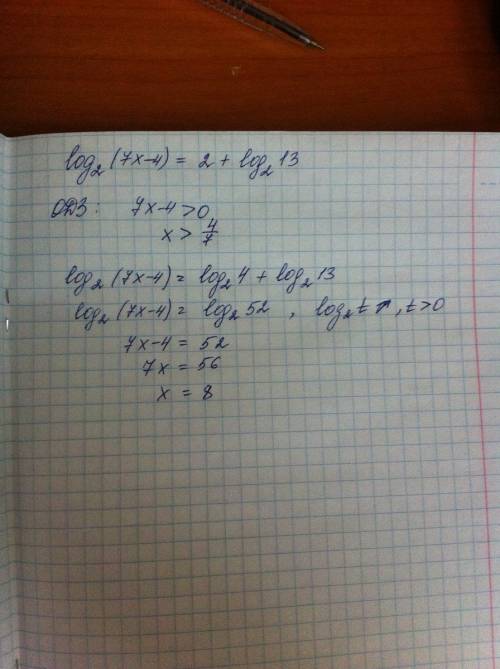 log₂(7x-4) = 2 + log₂13
ОДЗ: 7x-4>0
x > 4/7
log₂(7x-4) = log₂4 + log₂13
log₂(7x-4) = log₂52, log₂t ↑, t>0
7x-4 = 52
7x = 56
x = 8